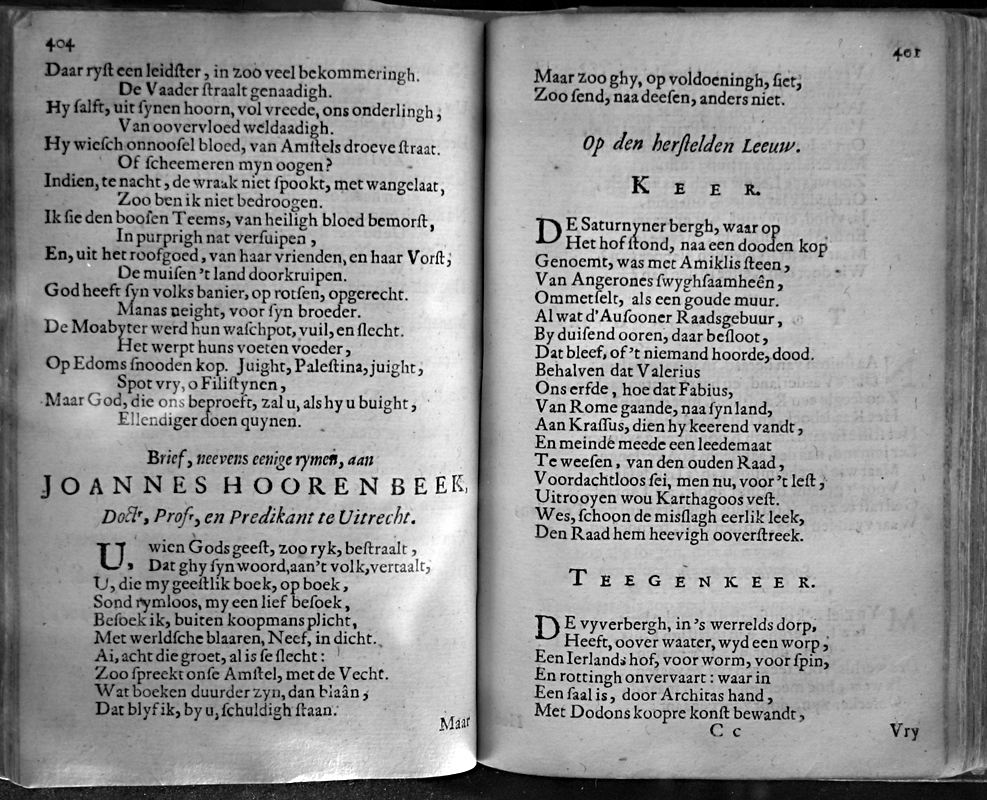 404
Daar ryſt een leidſter, in zoo veel bekommeringh.
De Vaader ſtraalt genaadigh.
Hy ſalft, uit ſynen hoorn, vol vreede, ons onderlingh,
Van oovervloed weldaadigh.
Hy wieſch onnooſel bloed, van Amſtels droeve ſtraat.
Of ſcheemeren myn oogen?
Indien, te nacht, de wraak niet ſpookt, met wangelaat,
Zoo ben ik niet bedroogen.
Ik ſie den booſen Teems, van heiligh bloed bemorſt,
In purprigh nat verſuipen,
En, uit het roofgoed, van haar vrienden, en haar Vorſt,
De muiſen 't land doorkruipen.
God heeft ſyn volks banier, op rotſen, opgerecht.
Manas neight, voor ſyn broeder.
De Moabyter werd hun waſchpot, vuil, en ſlecht.
Het werpt huns voeten voeder,
Op Edoms ſnooden kop. Juight, Paleſtina, juight,
Spot vry, o Filiſtynen,
Maar God, die ons beproeft, zal u, als hy u buight,
Ellendiger doen quynen.
Brief, neevens eenige rymen, aan
JOANNES HOORENBEEK,
Doctr, Profr, en Predikant te Uitrecht.
U, wien Gods geeſt, zoo ryk, beſtraalt,
Dat ghy ſyn woord, aan't volk, vertaalt,
U, die my geeſtlik boek, op boek,
Sond rymloos, my een lief beſoek,
Beſoek ik, buiten koopmans plicht,
Met werldſche blaaren, Neef, in dicht.
Ai, acht die groet, al is ſe ſlecht:
Zoo ſpreekt onſe Amſtel, met de Vecht.
Wat boeken duurder zyn, dan blaân,
Dat blyf ik, by u, ſchuldigh ſtaan.
Maar
401
Maar zoo ghy, op voldoeningh, ſiet,
Zoo ſend, naa deeſen, anders niet.
Op den herſtelden Leeuw.
KEER.
DE Saturnyner bergh, waar op
Het hof ſtond, naa een dooden kop
Genoemt, was met Amiklis ſteen,
Van Angerones ſwyghſaamheên,
Ommetſelt, als een goude muur.
Al wat d'Auſooner Raadsgebuur,
By duiſend ooren, daar beſloot,
Dat bleef, of 't niemand hoorde, dood.
Behalven dat Valerius
Ons erfde, hoe dat Fabius,
Van Rome gaande, naa ſyn land,
Aan Kraſſus, dien hy keerend vandt,
En meinde meede een leedemaat
Te weeſen, van den ouden Raad,
Voordachtloos ſei, men nu, voor 't leſt,
Uitrooyen wou Karthagoos veſt.
Wes, ſchoon de misſlagh eerlik leek,
Den Raad hem heevigh ooverſtreek.
TEEGENKEER.
DE vyverbergh, in 's werrelds dorp,
Heeft, oover waater, wyd een worp,
Een Ierlands hof, voor worm, voor ſpin,
En rottingh onvervaart: waar in
Een ſaal is, door Architas hand,
Met Dodons koopre konſt bewandt,
C c
Vry